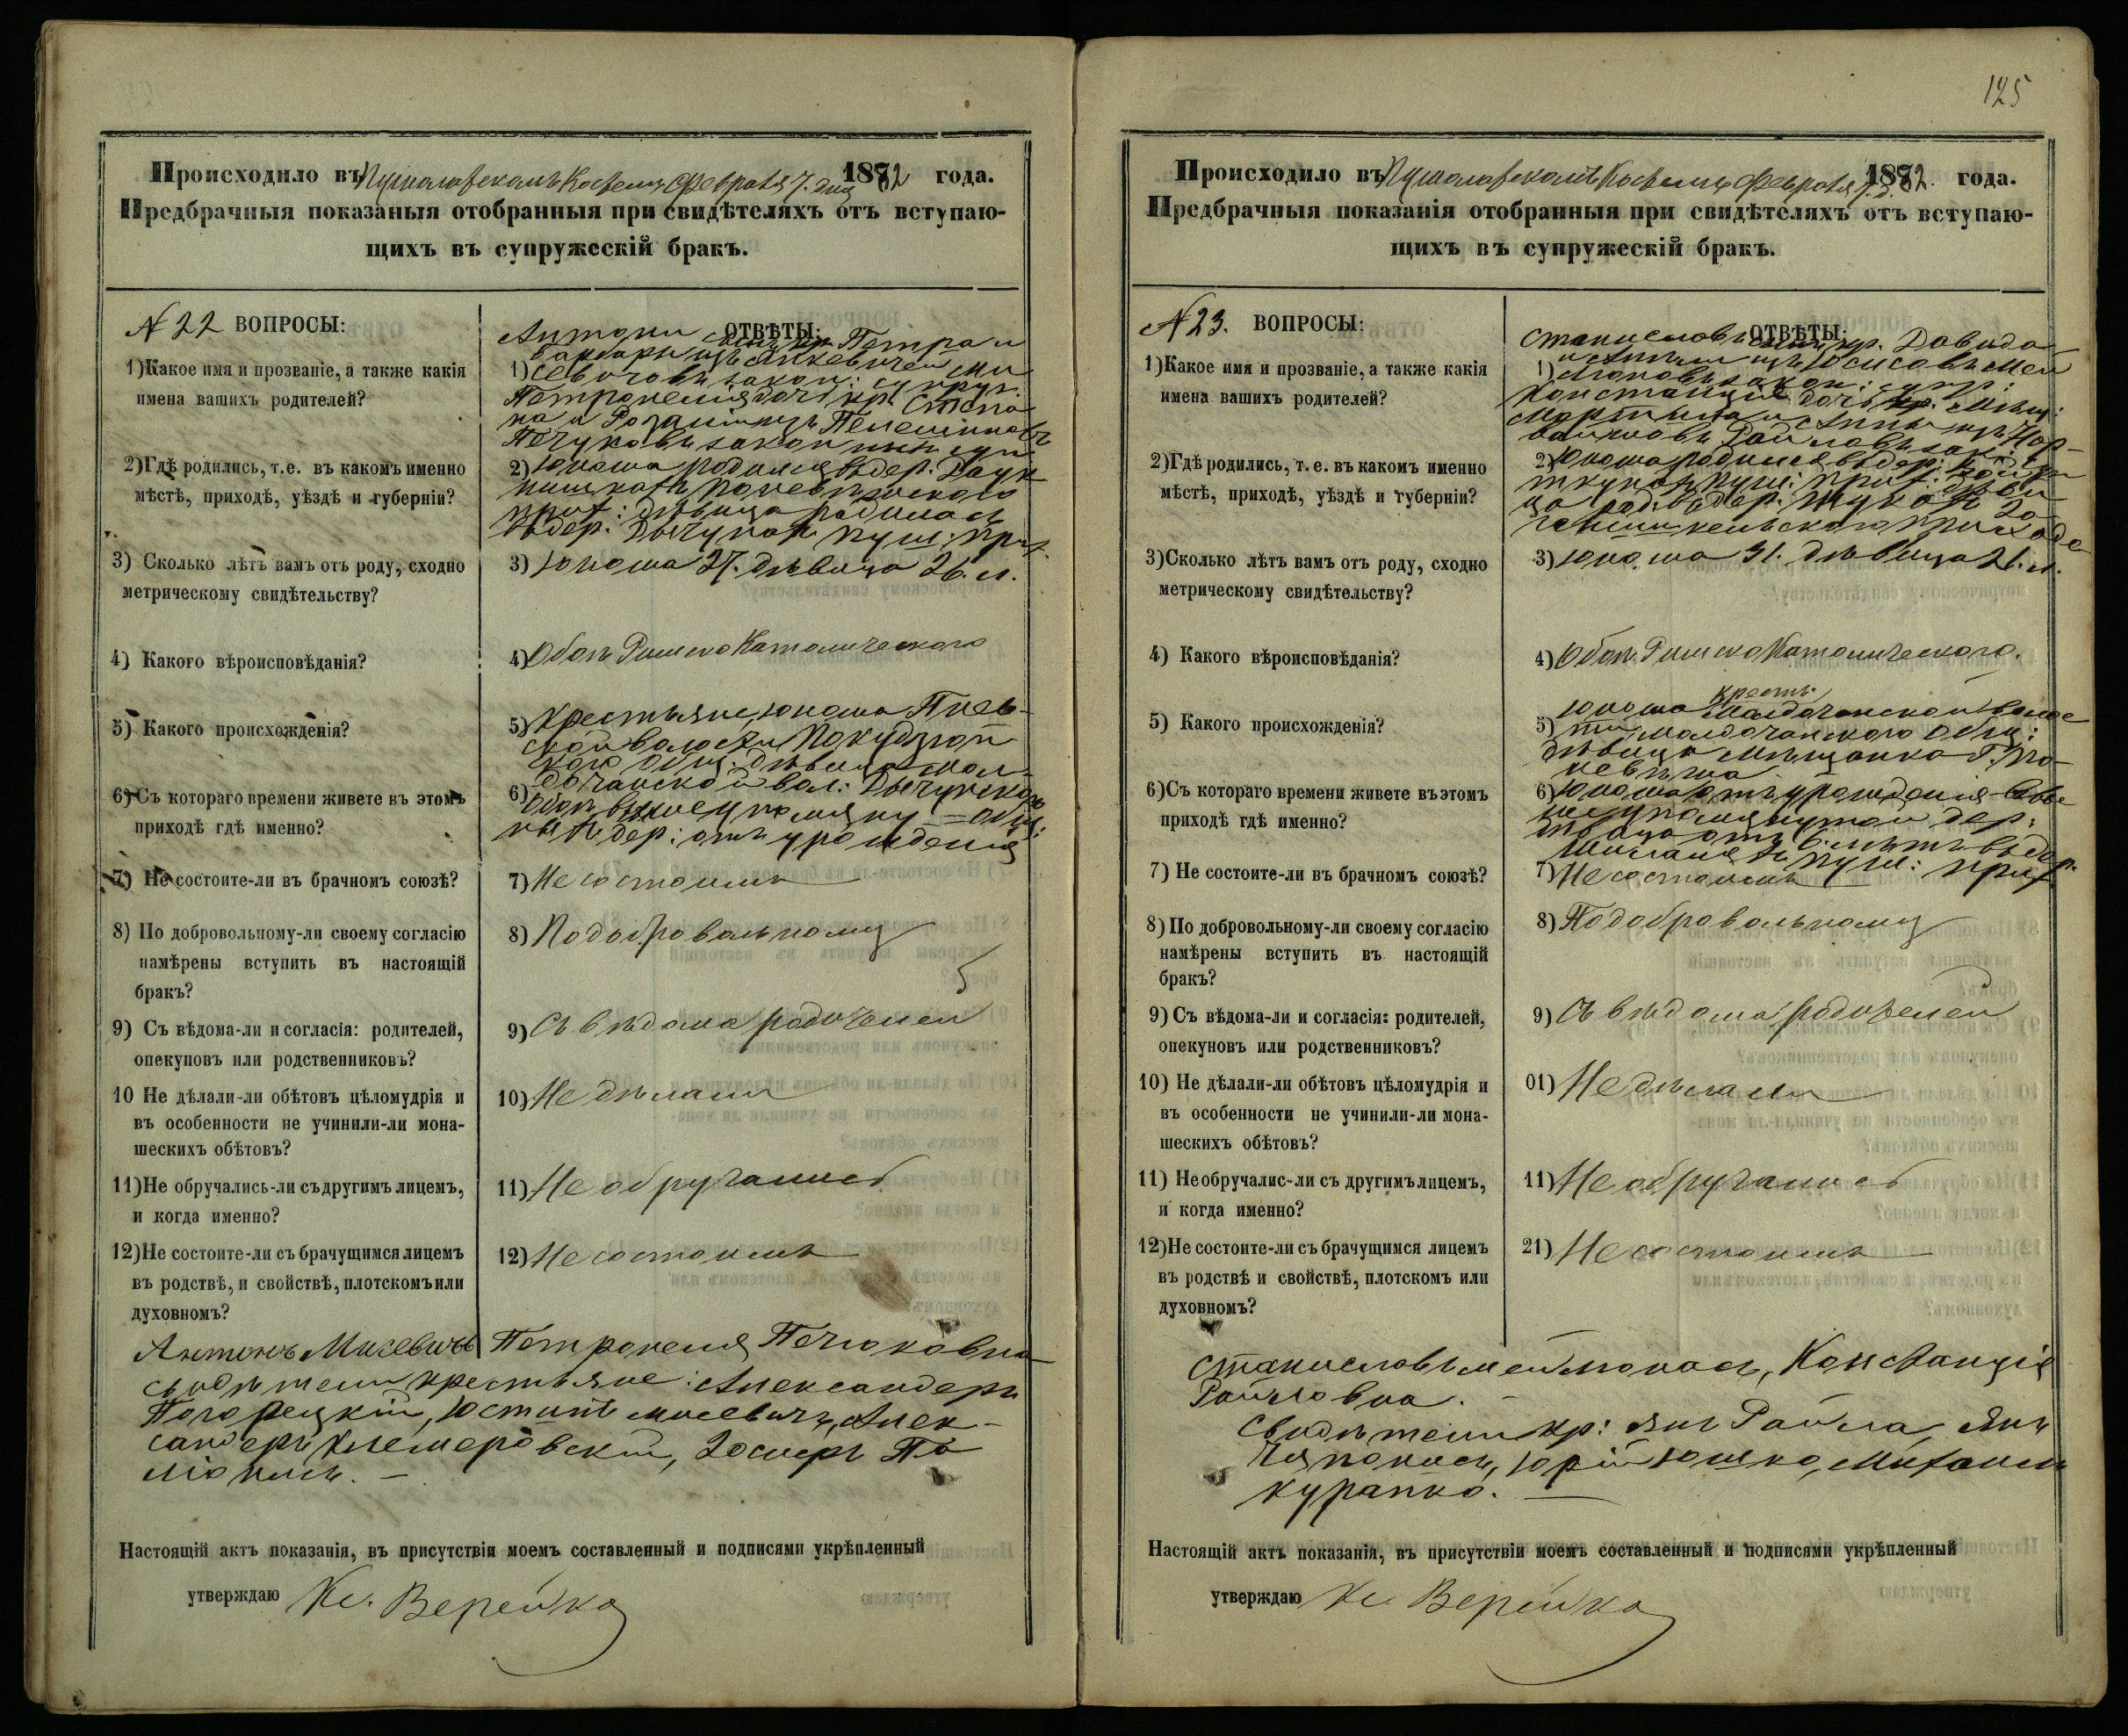 Происходило въ Пушолатскомъ Костелѣ Февраля 7. дня 1882 года.
Предбрачныя показаныя отобранныя при свидѣтеляхъ отъ вступаю-
щихъ въ супружескій бракъ.
N 22 ВОПРОСЫ:
ОТВѢТЫ:
1)Какое имя и прозваніе, а также какія
имена вашихъ родителей?
Антони сынъ кр. Петра и
Барбары изъ Янкевичей Ми
1) севичовъ закон: супруг.
Петронеля дочь кр. Степа
на и Розаліи изъ
Печуковъ закон
2)Гдѣ родились, т.е. въ какомъ именно
мѣстѣ, приходѣ, уѣздѣ и губерніи?
2) Юноша родился въ дер.
Поневѣжскаго
прих: дѣвица родилась
въ дер: пуш: прих.
3) Сколько лѣтъ вамъ отъ роду, сходно
метрическому свидѣтельству?
3) Юноша 27. дѣвица 26. л.
4) Какого вѣроисповѣданія?
4) Обоѣ Римско Католического
5) Какого происхожденія?
5) Крестьяне, юноша
ской волости
кого общ: дѣвица
6) Съ котораго времени живете въ этомъ
приходѣ гдѣ именно?
6) вол:
Обоѣ вышеупомяну = общ:
тыхъ дер: отъ урождения
7) Не состоите-ли въ брачномъ союзѣ?
7) Не состоимъ
8) По добровольному-ли своему согласію
намѣрены вступить въ настоящій
бракъ?
8) По добровольному
9) Съ вѣдома-ли и согласія: родителей,
опекуновъ или родственниковъ?
9) Съ вѣдома родителей
10 Не дѣлали-ли обѣтовъ цѣломудрія и
въ особенности не учинили-ли мона-
шескихъ обѣтовъ?
10) Не дѣлали
11)Не обручались-ли съ другимъ лицемъ,
и когда именно?
11) Не обручались
12)Не состоите-ли съ брачущимся лицемъ
въ родствѣ, и свойствѣ, плотскомъ или
духовномъ?
12) Не состоимъ
Антонъ Мисевичъ Петронеля Печюковна
свидѣтели крестьяне: Александеръ
Погорецкій, Юстинъ Мисевичъ, Алек-
сандеръ Клемеровскій,

Настоящій актъ показанія, въ присутствіи моемъ составленный и подписями укрѣпленный
утверждаю Кс. Верейко
125
Происходило въ Пушолатскомъ Костелѣ Февраля 7. д. 1882. года.
Предбрачныя показанія отобранныя при свидѣтеляхъ отъ вступаю-
щихъ въ супружескій бракъ.
N 23. ВОПРОСЫ:
ОТВѢТЫ:
1)Какое имя и прозваніе, а также какія
имена вашихъ родителей?
Станиславъ сынъ кр. Давида
и изъ Юсисовъ Мей
1) лоновъ закон: супр:
Констанція дочь мѣщ:
Мартина и Анны изъ
Райловъ зак:
2)Гдѣ родились, т. е. въ какомъ именно
мѣстѣ, приходѣ, уѣздѣ и губерніи?
2) Юноша родился въ дер:
пуш: прих: дѣви
ца род. въ дер.
прихода
3)Сколько лѣтъ вамъ отъ роду, сходно
метрическому свидѣтельству?
3) Юноша 31. дѣвица 21. л.
4) Какого вѣроисповѣданія?
4) Обоѣ Римско Католического.
5) Какого происхожденія?
крестъ.
юноша волос
5) ти общ:
дѣвица мѣщанка Г. По
невѣжа
6)Съ котораго времени живете въ этомъ
приходѣ гдѣ именно?
6) Юноша отъ урождения в выше
упомянутой дер:
отъ 6. лѣтъ въ дер.
пуш: прих.
7) Не состоите-ли въ брачномъ союзѣ?
7) Не состоимъ
8) По добровольному-ли своему согласію
намѣрены вступить въ настоящій
бракъ?
8) По добровольному
9) Съ вѣдома-ли и согласія: родителей,
опекуновъ или родственниковъ?
9) Съ вѣдома родителей
10) Не дѣлали-ли обѣтовъ цѣломудрія и
въ особенности не учинили-ли мона-
шескихъ обѣтовъ?
01) Не дѣлали
11) Не обручалис-ли съ другимъ лицемъ,
и когда именно?
11) Не обручались
12)Не состоите-ли съ брачущимся лицемъ
въ родствѣ и свойствѣ, плотскомъ или
духовномъ?
21) Не состоимъ
Станиславъ Мейлонасъ, Констанція
Райловна.
Свидѣтели кр: Янъ Райла, Янъ
Чапонисъ, Юрій Юшко, Михаилъ
Курапка.
Настоящій актъ показанія, въ присутствіи моемъ составленный и подписями укрѣпленный
утверждаю Кс. Верейко